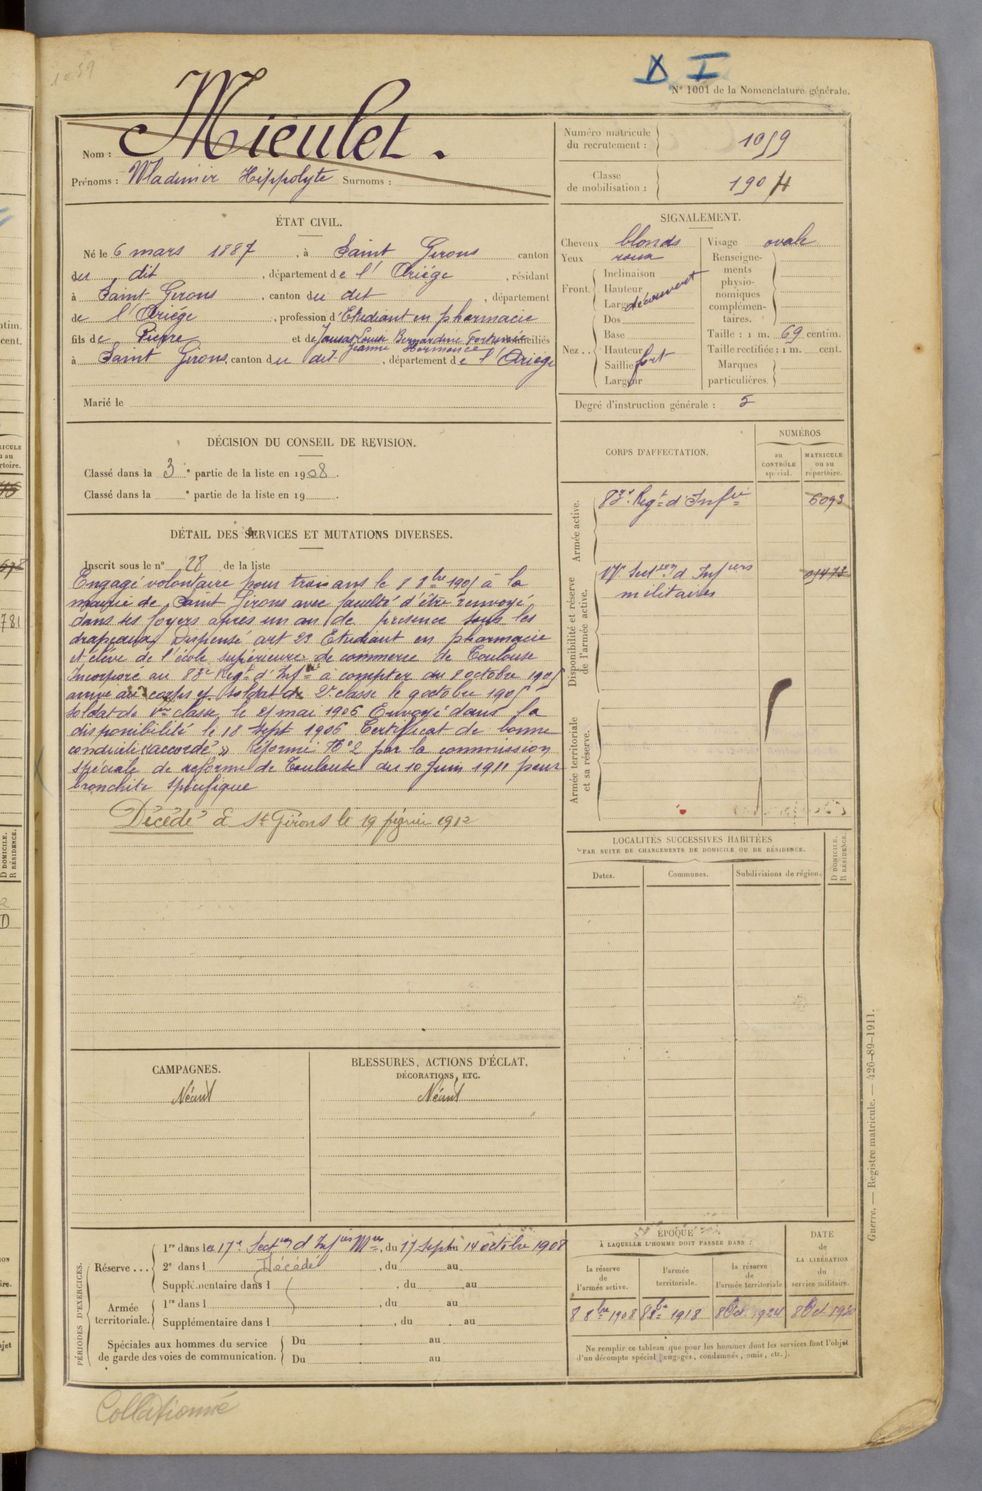 1059
X I
N° 1001 de la Nomenclature générale.
Nom : Mieulet.
Prénoms : Wladimir Hippolyte Surnoms :
Numéro matricule du recrutement : 1059
Classe de mobilisation : 1904
ÉTAT CIVIL.
Né le 6 mars 1887, à Saint Girons canton
du dit, département de l'Ariège, résidant
à Saint-Girons, canton du dit, département
de l'Ariège, profession d'Etudiant en pharmacie
fils de Pierre et de Louise Bernardine Fortunée domiciliés
Jeanne Hermance
à Saint Girons, canton du dit, département de l'Ariège
Marié le
SIGNALEMENT.
Cheveux blonds
Yeux roux
Front. Inclinaison
Hauteur
Larg découvert
Nez . . Dos
Base
Hauteur
Saillie fort
Largeur
Visage ovale
Renseignements physionomiques complémentaires.
Taille : 1 m. 69 centim.
Taille rectifiée : 1 m. cent.
Marques particulières.
Degré d'instruction générale : 5
DÉCISION DU CONSEIL DE REVISION.
Classé dans la 3e partie de la liste en 1908.
Classé dans la e partie de la liste en 19 .
DÉTAIL DES SERVICES ET MUTATIONS DIVERSES.
Inscrit sous le n° 28 de la liste
Engagé volontaire pour trois ans le 8 8bre 1905 à la
mairie de Saint Girons avec faculté d'être renvoyé
dans ses foyers après un an de présence sous les
drapeaux, Dispensé art 23 Etudiant en pharmacie
et élève de l'école supérieure de commerce de Toulouse
Incorporé au 83e Régt d'Infrie à compter du 8 octobre 1905
arrivé au corps et soldat de 2e classe le 9 octobre 1905
soldat de 1re classe le 21 mai 1906 Envoyé dans la
disponibilité le 18 Sept 1906 Certificat de bonne
conduite "accordé" Réformé N°2 par la commission
spéciale de réforme de Toulouse du 10 Juin 1911 pour
bronchite spécifique
Décédé à St Girons le 19 février 1912
CORPS D'AFFECTATION.
NUMÉROS
au CONTRÔLE spécial.
MATRICULE ou au répertoire.
Armée active.
83e Régt d'Infrie 6093
Disponibilité et réserve de l'armée active.
17e Secton d'Infiers
militaires
Armée territoriale et sa réserve.
LOCALITÉS SUCCESSIVES HABITÉES
PAR SUITE DE CHANGEMENTS DE DOMICILE OU DE RÉSIDENCE.
Dates.
Communes.
Subdivisions de région.
D DOMICILE. R RÉSIDENCE.
CAMPAGNES.
Néant
BLESSURES, ACTIONS D'ÉCLAT,
DÉCORATIONS, ETC.
Néant
PÉRIODES D'EXERCICES.
Réserve . . .
1re dans la 17e Secton d'Infiers Mres, du 17 Septe au 14 octobre 1908
2e dans l Décédé, du au
Supplémentaire dans l , du au
Armée territoriale.
1re dans l , du au
Supplémentaire dans l , du au
Spéciales aux hommes du service de garde des voies de communication. Du au
Du au
ÉPOQUE
À LAQUELLE L'HOMME DOIT PASSER DANS
la réserve de l'armée active.
l'armée territoriale.
la réserve de l'armée territoriale
DATE de LA LIBÉRATION du service militaire.
8 8bre 1908
8 8bre 1918
8 Oct. 1924
8 Oct. 1930
Ne remplir ce tableau que pour les hommes dont les services font l'objet
d'un décompte spécial (engagés, condamnés, omis, etc.).
Guerre. — Registre matricule. — 426-89-1911.
Collationné